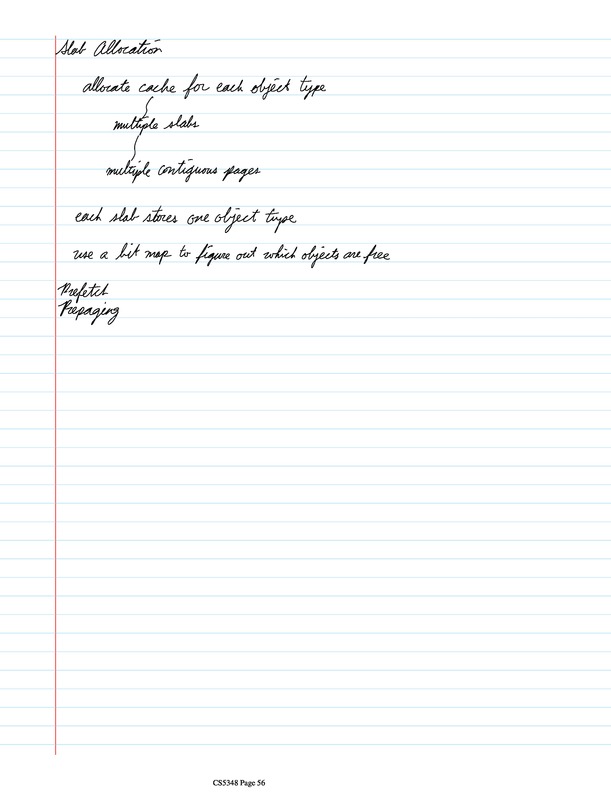 Slab Allocation
allocate cache for each object type
multiple slabs
multiple contiguous pages
each slab stores one object type
use a bit map to figure out which objects are free
Prefetch
Prepaging
CS5348 Page 56